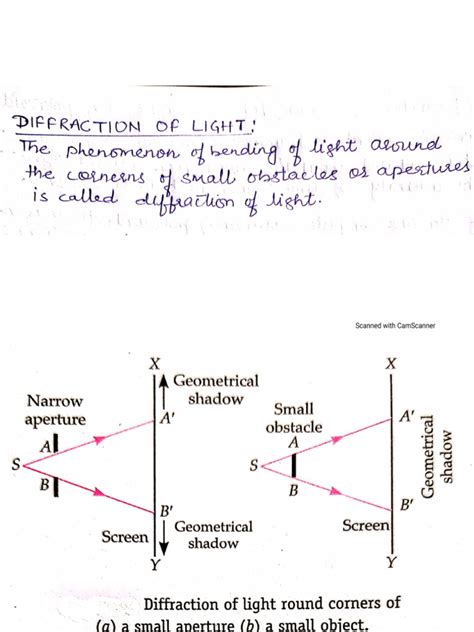 DIFFRACTION OF LIGHT:
The phenomenon of bending of light around
the cornerns of small obstacles or apertures
is called diffraction of light.
Scanned with CamScanner
X
Geometrical
shadow
Narrow
aperture
A'
A
S
B
B'
Geometrical
shadow
Screen
Y
X
Small
obstacle
A
A'
Geometrical
shadow
S
B
B'
Screen
Y
Diffraction of light round corners of
(a) a small aperture (b) a small object.